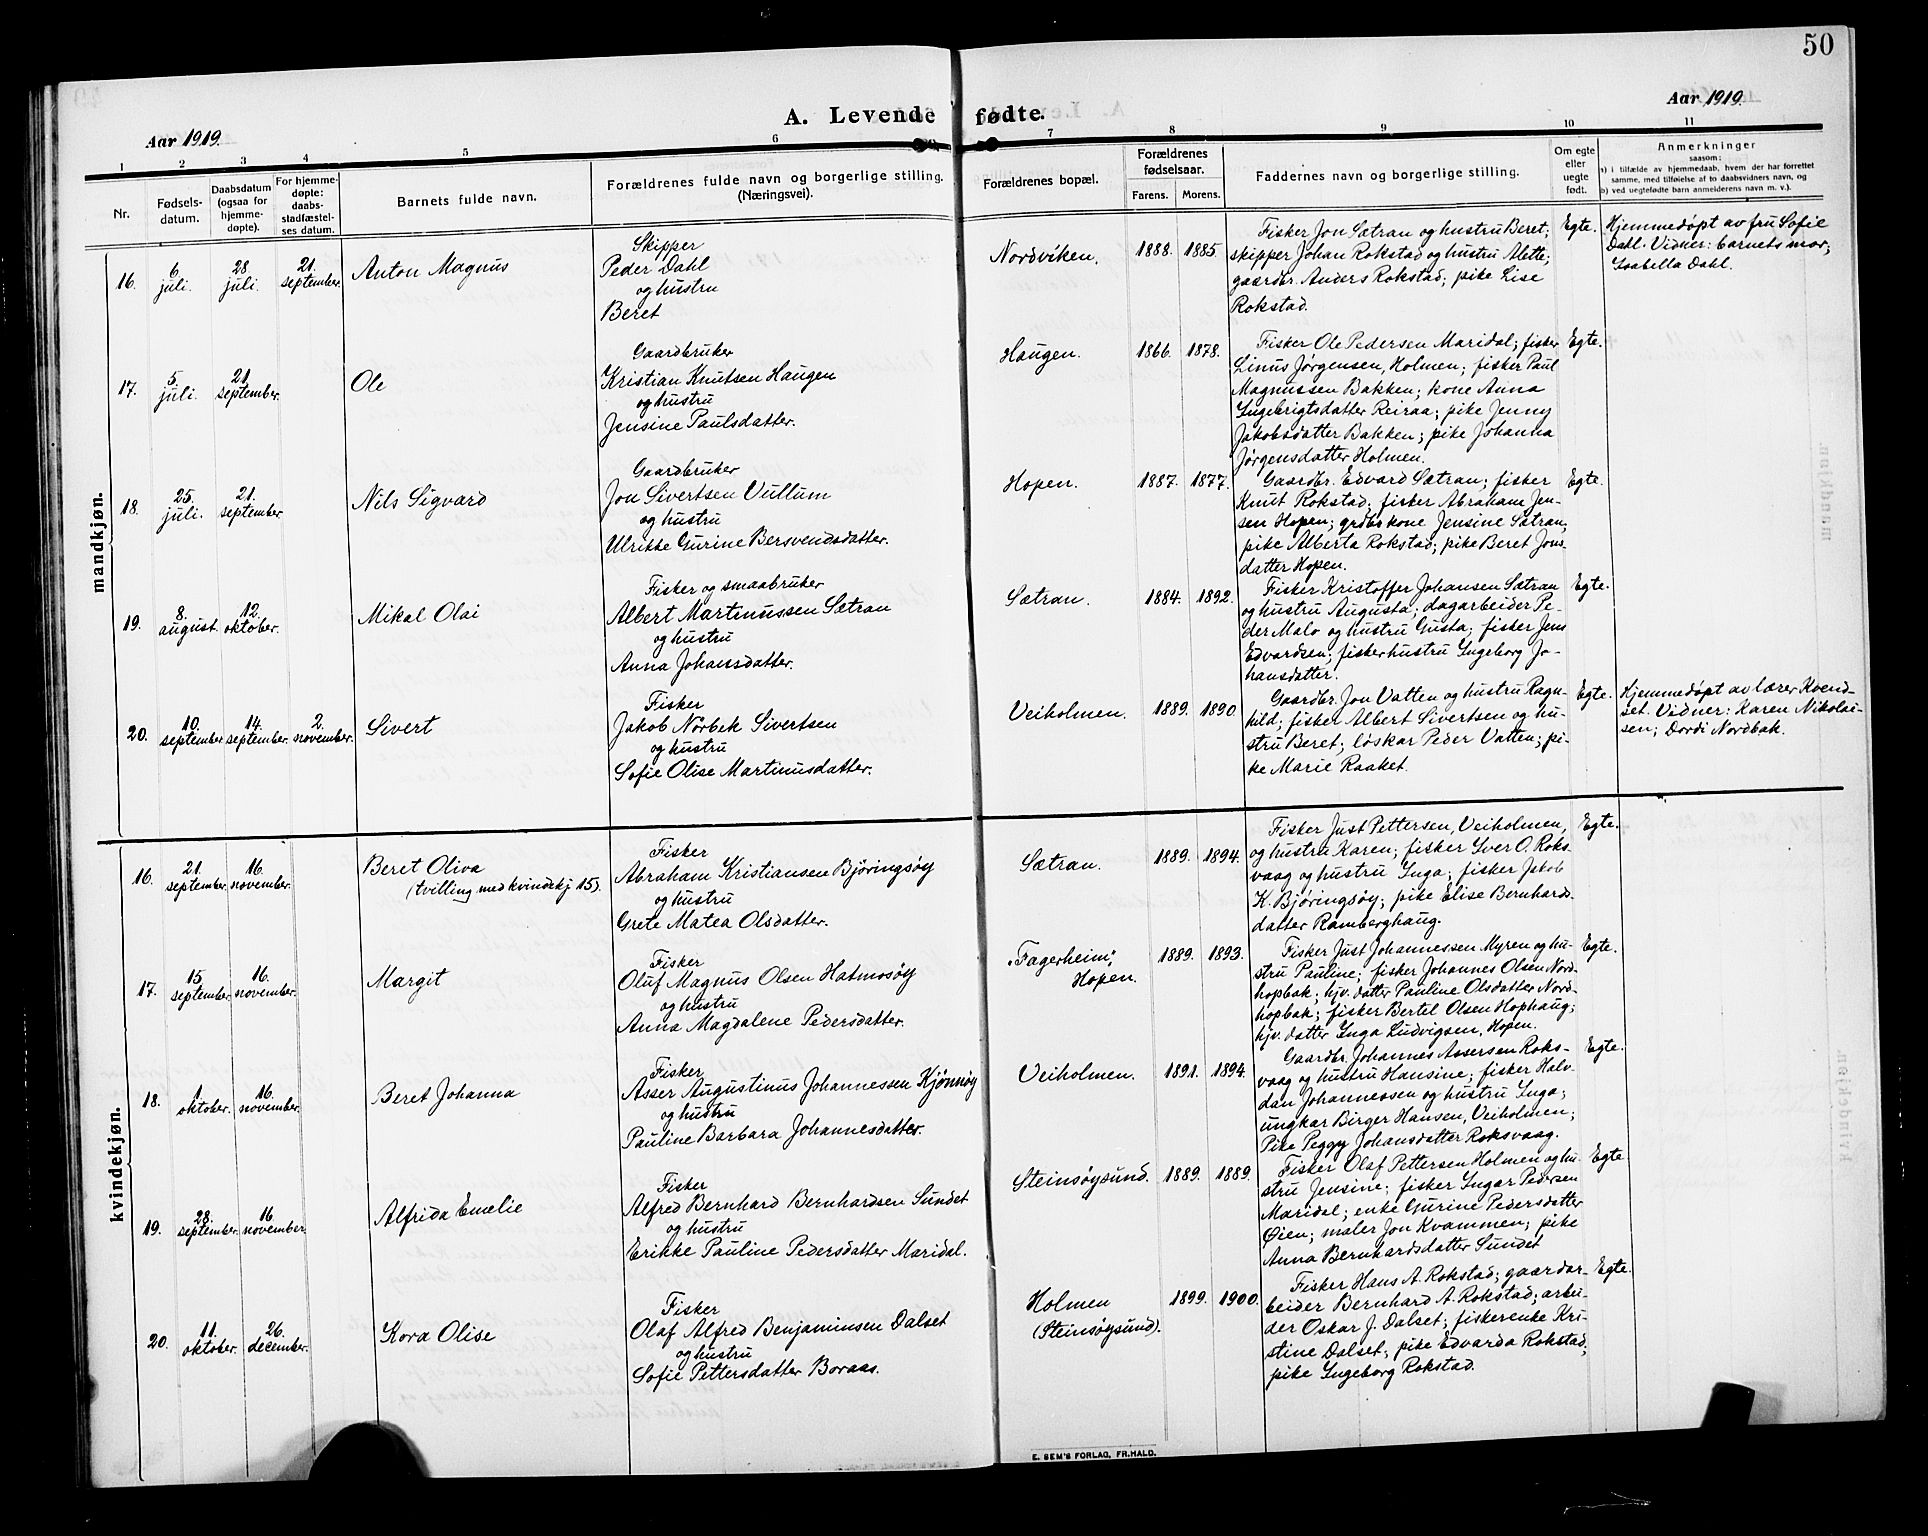 50
A. Levende fødte.
Aar 1919.
Aar 1919.
1 2 3 4 5 6 7 8 9 10 11
Nr.
Fødsels-
datum.
Daabsdatum
(ogsaa for
hjemme-
døpte).
For hjemme-
døpte:
daabs-
stadfæstel-
ses datum.
Barnets fulde navn.
Forældrenes fulde navn og borgerlige stilling.
(Næringsvei).
Forældrenes bopæl.
Forældrenes
fødselsaar.
Farens. Morens.
Faddernes navn og borgerlige stilling.
Om egte
eller
uegte
født.
Anmerkninger
saasom:
a) i tilfælde av hjemmedaab, hvem der har forrettet
samme, med tilføielse af to daabsvidners navn, og
b) ved uegtefødte barn anmelderens navn m. v.).
mandkjøn.
16.
6.
juli.
28.
juli.
21.
september.
Anton Magnus
Skipper
Peder Dahl
og hustru
Beret
Nordviken.
1888. 1885.
Fisker Jon Sætran og hustru Beret;
skipper Johan Rokstad og hustru Alette;
gaardbr. Anders Rokstad; pike Lise
Rokstad.
Egte.
Hjemmedøpt av fru Sofie
Dahl. Vidner: barnets mor;
Isabella Dahl.
17.
5.
juli.
21.
september.
Ole
Gaardbruker
Kristian Knutsen Haugen
og hustru
Jensine Paulsdatter.
Haugen.
1866. 1878.
Fisker Ole Pedersen Maridal; fisker
Linus Jørgensen, Holmen; fisker Paul
Magnussen Bakken; kone Anna
Ingebrigtsdatter Reiraa; pike Jenny
Jakobsdatter Bakken; pike Johanna
Jørgensdatter Holmen.
Egte.
18.
25.
juli.
21.
september.
Nils Sigvard
Gaardbruker
Jon Sivertsen Vullum
og hustru
Ulrikke Gurine Bersvendsdatter.
Hopen.
1887. 1877.
Gaardbr. Edvard Sætran; fisker
Knut Rokstad; fisker Abraham Jen-
sen Hopen; grdbr.kone Jensine Sætran;
pike Alberta Rokstad; pike Beret Jons-
datter Hopen.
Egte.
19.
8.
august.
12.
oktober.
Mikal Olai
Fisker og smaabruker
Albert Martinussen Sætran
og hustru
Anna Johansdatter.
Sætran.
1884. 1892.
Fisker Kristoffer Johansen Sætran
og hustru Augusta; dagarbeider Pe-
der Malo og hustru Gusta; fisker Jens
Edvardsen; fiskerhustru Ingeborg Jo-
hansdatter.
Egte.
20.
10.
september
14.
september.
2.
november.
Sivert
Fisker
Jakob Norbek Sivertsen
og hustru
Sofie Olise Martinusdatter.
Veiholmen.
1889. 1890
Gaardbr. Jon Vatten og hustru Ragn-
hild; fisker Albert Sivertsen og hu-
stru Beret; løskar Peder Vatten; pi-
ke Marie Raaket.
Egte.
Hjemmedøpt av lærer Kvend-
set. Vidner: Karen Nikolai-
sen; Dordi Nordbak.
kvindekjøn.
16.
21.
september.
16.
november.
Beret Oliva
(tvilling med kvindekj 15).
Fisker
Abraham Kristiansen Bjøringsøy
og hustru
Grete Matea Olsdatter.
Sætran.
1889. 1894.
Fisker Just Pettersen, Veiholmen,
og hustru Karen; fisker Iver O. Roks-
vaag og hustru Inga; fisker Jakob
K. Bjøringsøy; pike Elise Bernhards-
datter Ramberghaug.
Egte.
17.
15.
september.
16.
november.
Margit
Fisker
Oluf Magnus Olsen Hatmosøy
og hustru
Anna Magdalene Pedersdatter.
"Fagerheim",
Hopen.
1889. 1893.
Fisker Just Johannessen Myren og hu-
stru Pauline; fisker Johannes Olsen Nord-
hopbak; hjv. datter Pauline Olsdatter Nord-
hopbak; fisker Bertel Olsen Hophaug;
hjv. datter Inga Ludvigsen, Hopen.
Egte.
18.
1.
oktober.
16.
november.
Beret Johanna
Fisker
Asser Augustinus Johannessen Kjønnøy
og hustru
Pauline Barbara Johannesdatter.
Veiholmen.
1891. 1894.
Gaardbr. Johannes Assersen Roks-
vaag og hustru Hansine; fisker Halv-
dan Johannessen og hustru Inga;
ungkar Birger Hansen, Veiholmen;
Pike Peggy Johansdatter Roksvaag.
Egte.
19.
28.
september.
16.
november.
Alfrida Emelie
Fisker
Alfred Bernhard Bernhardsen Sundet
og hustru
Erikke Pauline Pedersdatter Maridal.
Steinsøysund.
1889. 1889.
Fisker Olaf Pettersen Holmen og hu-
stru Jensine; fisker Ingar Pedersen
Maridal; enke Gurine Pedersdatter
Øien; maler Jon Kvammen; pike
Anna Bernhardsdatter Sundet
Egte
20.
11.
oktober.
26.
december.
Kora Olise
Fisker
Olaf Alfred Benjaminsen Dalset
og hustru
Sofie Pettersdatter Boraas.
Holmen
(Steinsøysund).
1899. 1900.
Fisker Hans A. Rokstad; gaardar-
beider Bernhard A. Rokstad; arbei-
der Oskar J. Dalset; fiskerenke Kri-
stine Dalset; pike Edvarda Rokstad;
pike Ingeborg Rokstad.
Egte.
E. SEM'S FORLAG, FR.HALD.